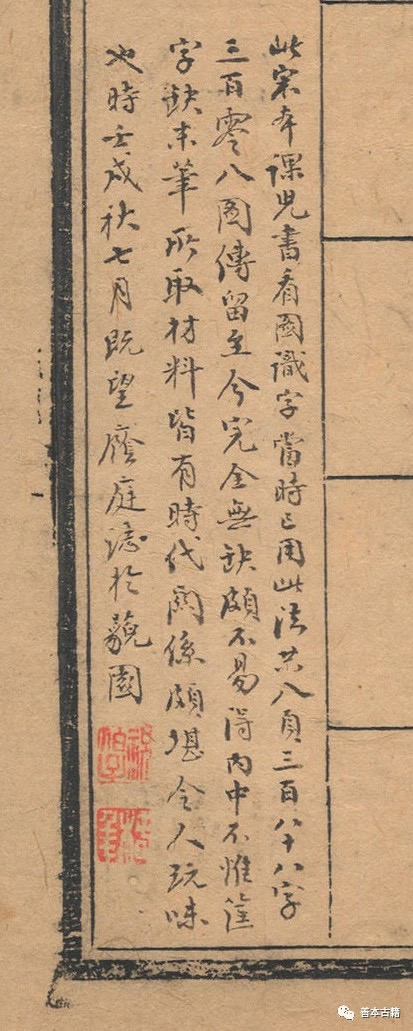 此宋本課兒書看圖識字當時已用此法共八頁三百八十八字
三百零八圖傳留至今完全無缺頗不易得內中不惟筐
字缺末筆所取材料皆有時代關係頗堪令人玩味
也時壬戌秋七月既望 庭誌於藐園
善本古籍